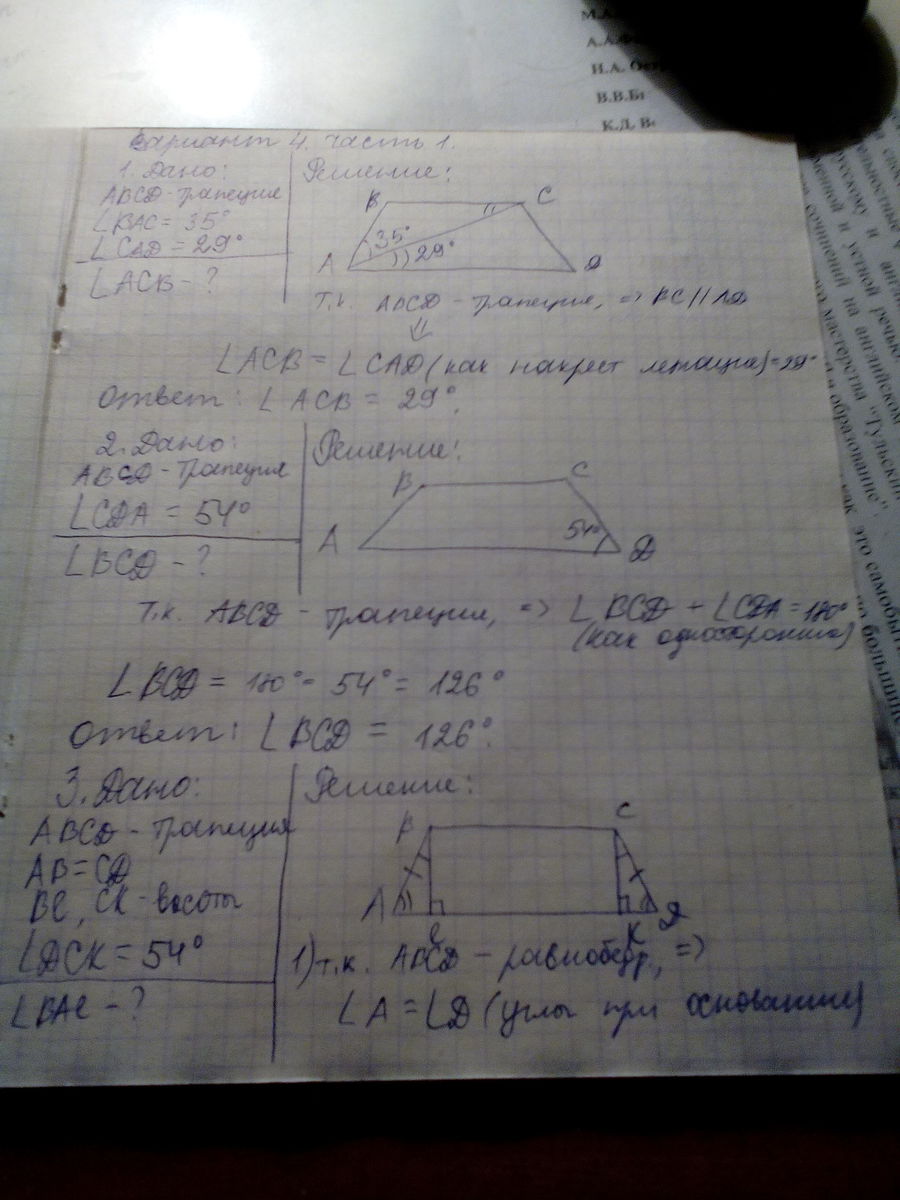 М.А.
И.А.
В.В.
К.Д. В
Вариант 4. Часть 1.
1. Дано:
ABCD - трапеция
∠BAC = 35°
∠CAD = 29°
∠ACB - ?
Решение:
B C
35°
29°
A D
Т.к. ABCD - трапеция, => BC // AD
∠ACB = ∠CAD (как накрест лежащие) = 29°
Ответ: ∠ACB = 29°.
2. Дано:
ABCD - трапеция
∠CDA = 54°
∠BCD - ?
Решение:
B C
54°
A D
Т.к. ABCD - трапеция, => ∠BCD + ∠CDA = 180°
(как односторонние)
∠BCD = 180° - 54° = 126°
Ответ: ∠BCD = 126°.
3. Дано:
ABCD - трапеция
AB = CD
Be, CK - высоты
∠DCK = 54°
∠BAe - ?
Решение:
B C
A D
e K
1) т.к. ABCD - равнобедр., =>
∠A = ∠D (углы при основании)
сочинений на английском
мастерства "Тульский
и образование"
как это самобыт